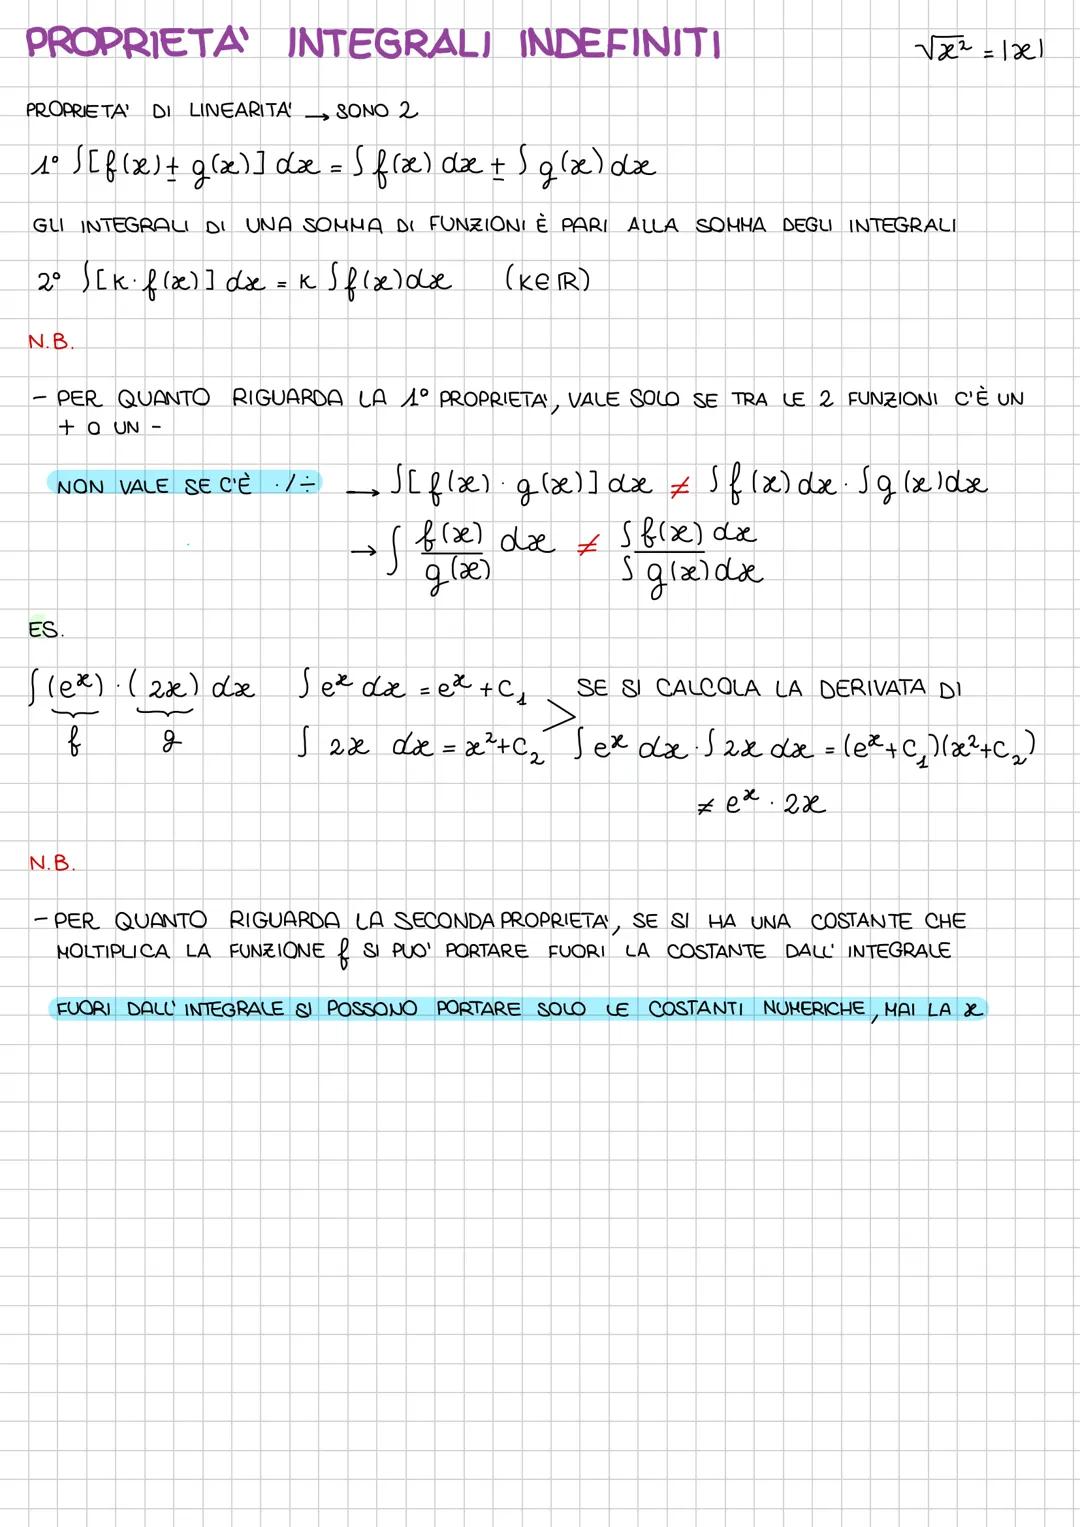 PROPRIETA' INTEGRALI INDEFINITI
√x² = |x|
PROPRIETA' DI LINEARITA' → SONO 2
1° ∫[f(x) ± g(x)] dx = ∫ f(x) dx ± ∫ g(x) dx
GLI INTEGRALI DI UNA SOMMA DI FUNZIONI È PARI ALLA SOMMA DEGLI INTEGRALI
2° ∫[K · f(x)] dx = K ∫ f(x) dx (K∈ℝ)
N.B.
- PER QUANTO RIGUARDA LA 1° PROPRIETA', VALE SOLO SE TRA LE 2 FUNZIONI C'È UN
+ O UN -
NON VALE SE C'È · / ÷ → ∫[f(x) · g(x)] dx ≠ ∫ f(x) dx · ∫ g(x) dx
→ ∫ f(x)/g(x) dx ≠ ∫ f(x) dx / ∫ g(x) dx
ES.
∫(eˣ) · (2x) dx ∫ eˣ dx = eˣ + C₁ > SE SI CALCOLA LA DERIVATA DI
f g ∫ 2x dx = x² + C₂ ∫ eˣ dx · ∫ 2x dx = (eˣ + C₁)(x² + C₂)
≠ eˣ · 2x
N.B.
- PER QUANTO RIGUARDA LA SECONDA PROPRIETA', SE SI HA UNA COSTANTE CHE
MOLTIPLICA LA FUNZIONE f SI PUO' PORTARE FUORI LA COSTANTE DALL' INTEGRALE
FUORI DALL' INTEGRALE SI POSSONO PORTARE SOLO LE COSTANTI NUMERICHE, MAI LA x